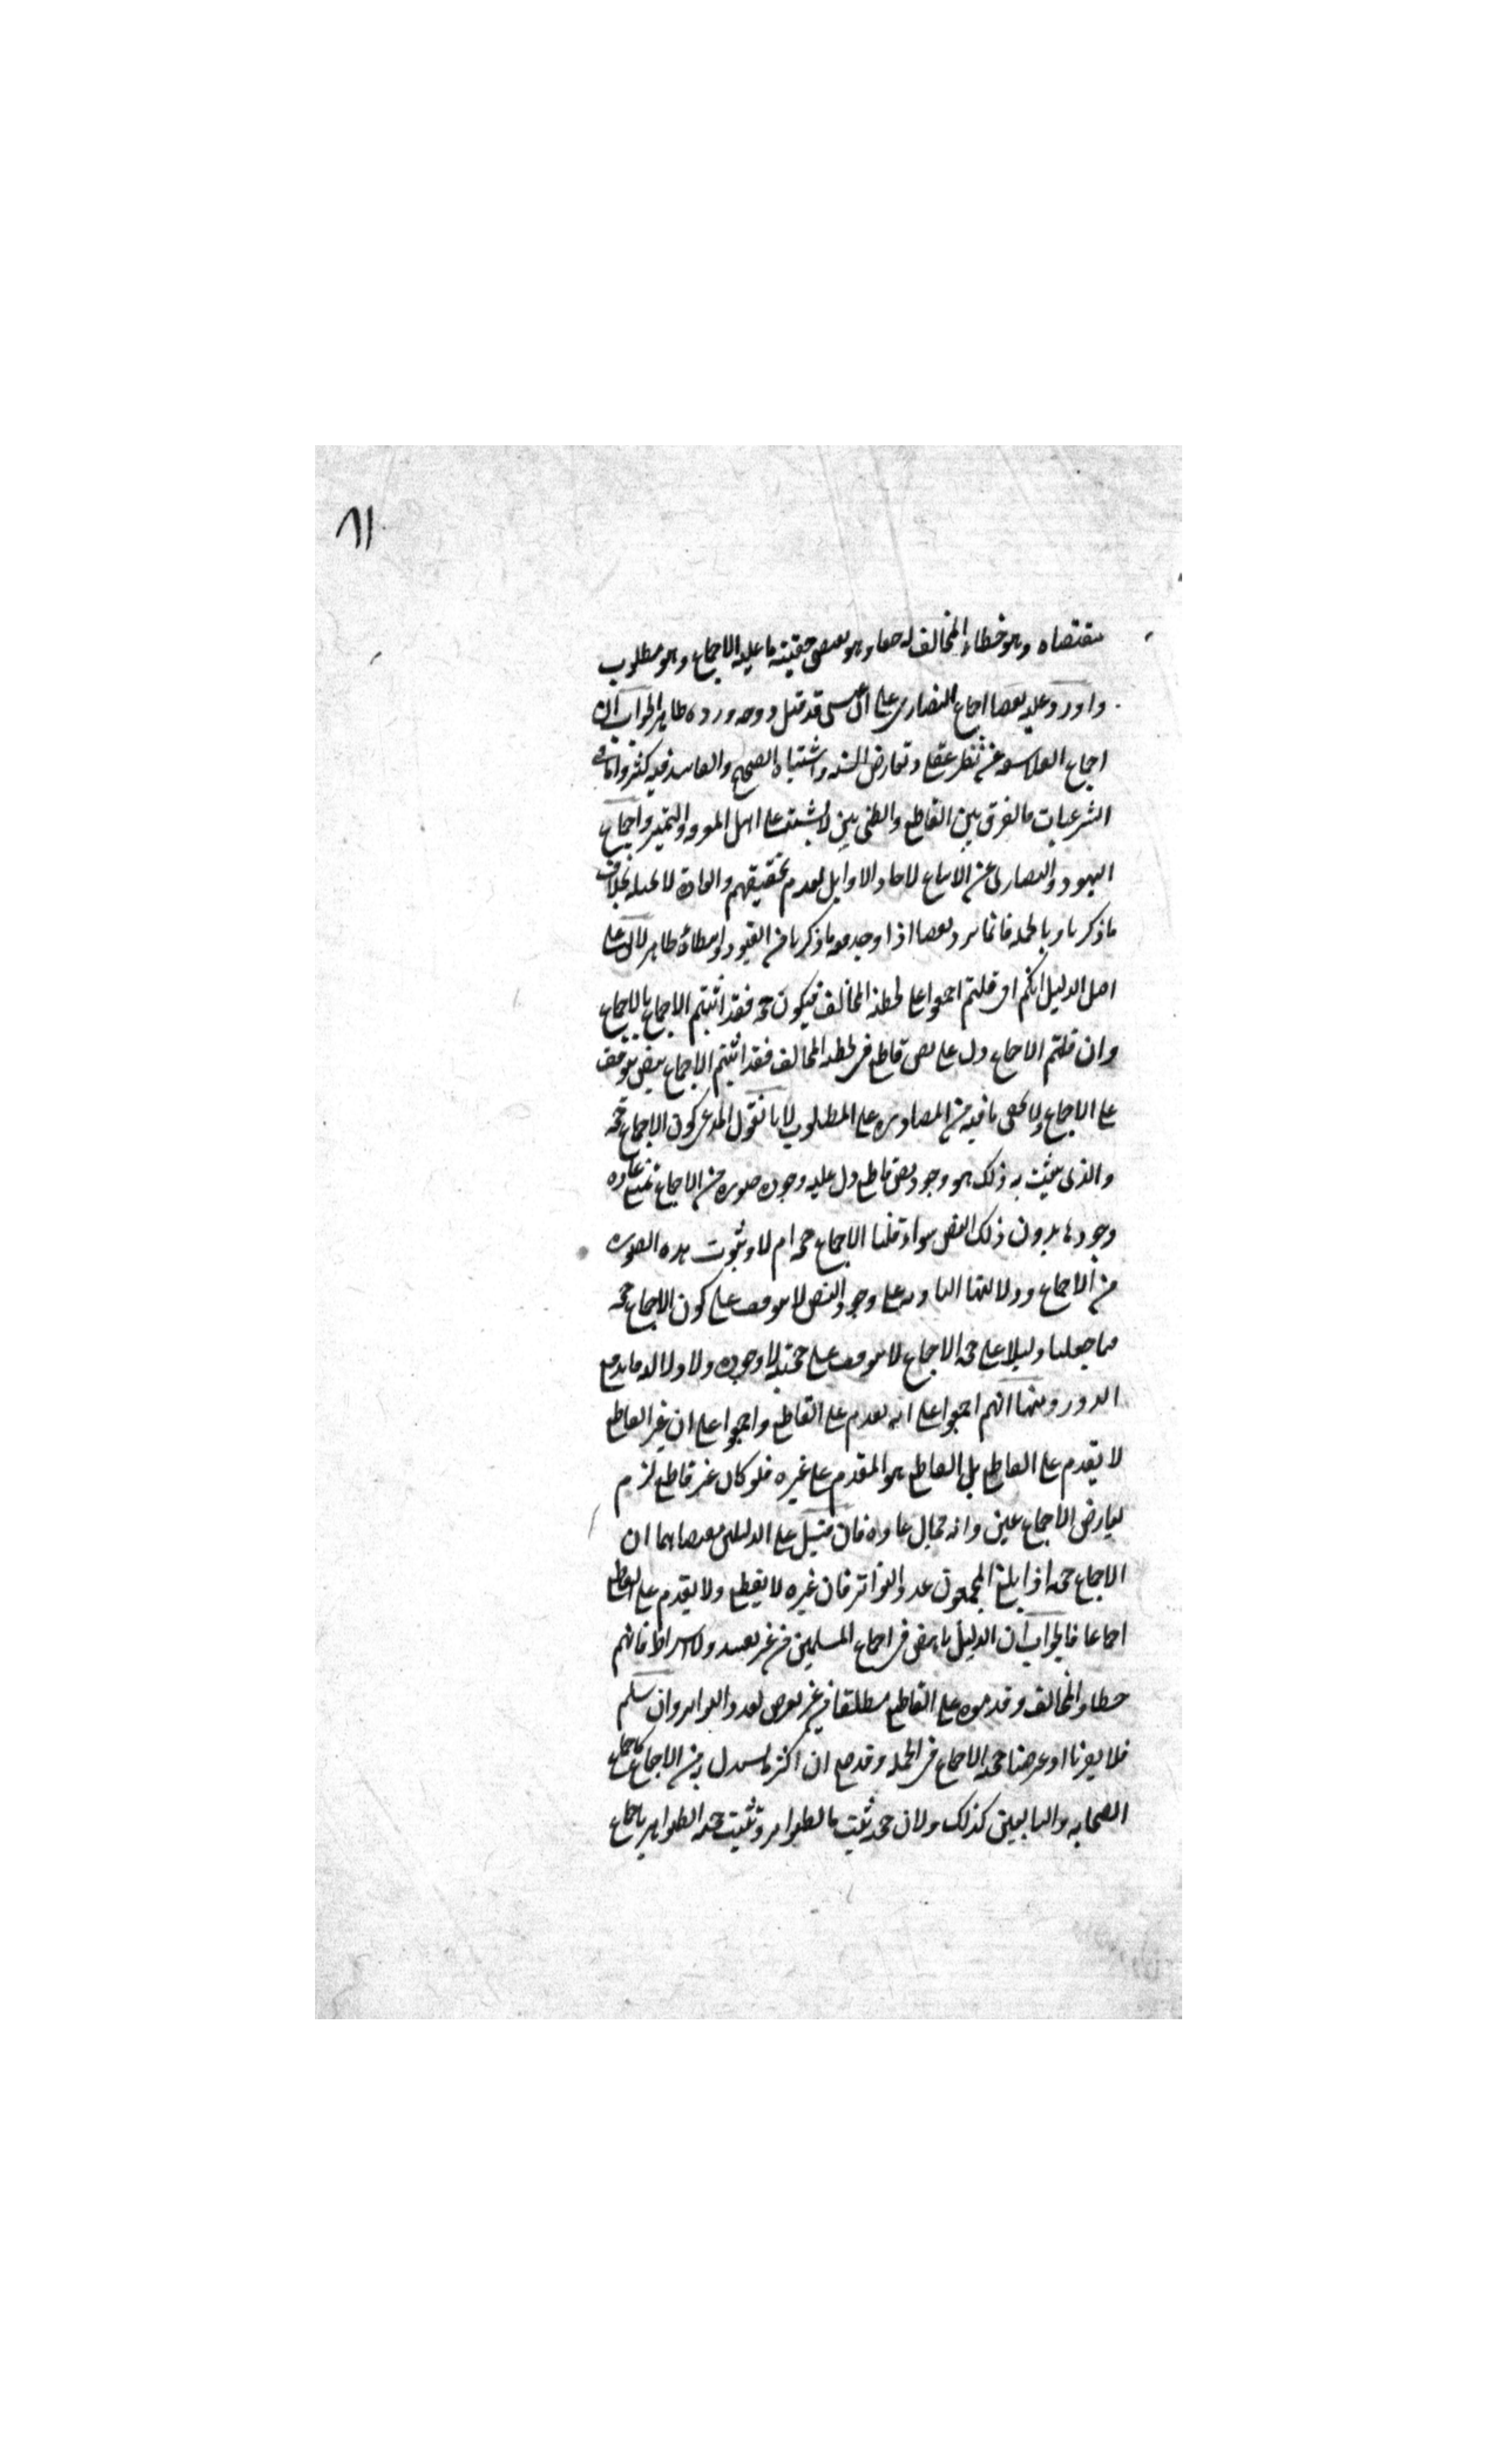 ٨١
مقتضاه وهو خطاء المخالف له حقا وهو يقتضي حقية ما عليه الاجماع وهو مطلوب
واورد عليه نقضا اجماع النصارى على ان عيسى قد قتل ووجه وروده ظاهر الجواب ان
اجماع الفلاسفة عن نظر عقلي وتعارض الشبه واشتباه الصحيح والفاسد فيه كثير واما في
الشرعيات فالفرق بين القاطع والظني بين لا يشتبه على اهل المعرفة والتمييز واجماع
اليهود والنصارى عن الاتباع لاحاد الاوايل لعدم تحقيقهم والعادة لا تحيله بخلاف
ما ذكرنا وبالجملة فانما يرد نقضا اذا وجد معه ما ذكرنا من القيود وانتفاؤه ظاهر لا يقال على
اصل الدليل انكم ان قلتم اجمعوا على تخطئة المخالف فيكون حجة فقد اثبتم الاجماع بالاجماع
وان قلتم الاجماع دل على نص قاطع في تخطئة المخالف فقد اثبتم الاجماع بنص يتوقف
على الاجماع ولا يخفى ما فيه من المصادرة على المطلوب لانا نقول المدعى كون الاجماع حجة
والذي يثبت به ذلك هو وجود نص قاطع دل عليه وجود صورة من الاجماع تمتنع عادة
وجودها بدون ذلك النص سواء قلنا الاجماع حجة ام لا وثبوت هذه الصورة
من الاجماع ودلالتها العادية على وجود النص لا يتوقف على كون الاجماع حجة
فما جعلنا دليلا على حجة الاجماع لا يتوقف على حجيته لا وجوده ولا دلالته فاندفع
الدور ومنها انهم اجمعوا على انه يقدم على القاطع واجمعوا على ان غير القاطع
لا يقدم على القاطع بل القاطع هو المقدم على غيره فلو كان غير قاطع لزم
تعارض الاجماعين وانه محال عادة فان قيل على الدليلين مقتضاهما ان
الاجماع حجة اذا بلغ المجمعون عدد التواتر فان غيره لا يقطع ولا يقدم على القاطع
اجماعا فالجواب ان الدليل ناهض في اجماع المسلمين من غير تقييد ولا اشتراط فانهم
خطاوا المخالف وقدموه على القاطع مطلقا من غير تعرض لعدد التواتر وان سلم
فلا يضرنا اذ غرضنا حجية الاجماع في الجملة وقد صح ان اكثر ما يستدل به من الاجماع كاجماع
الصحابة والتابعين كذلك ولان حجيته ثبتت بالظواهر وتثبت حجية الظواهر باجماع